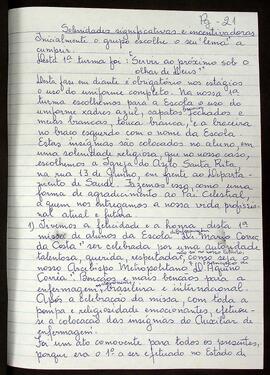 Pg - 21
Solenidades significativas e incentivadoras
Inicialmente o grupo escolhe o seu lema a
cumprir:
Desta 1ª turma foi: Servir ao próximo sob o
olhar de Deus".
Desta fase em diante é obrigatório nos estágios
o uso do uniforme completo. Na nossa 1ª
turma escolhemos para a Escola o uso do
uniforme xadrez azul, sapatos fechados e
meias brancas, touca branca, e a
no braço esquerdo com o nome da Escola
Estas insígnias são colocadas no aluno, em
uma solenidade religiosa, que no nosso caso,
escolhemos a Igreja do Asilo Santa Rita,
na rua 13 de Junho, em frente ao Departa-
mento de Saúde. Fazemos isso, como uma
forma de agradecimento ao Pai Celestial,
a quem nos entregamos a nossa vida profissio-
nal atual e futura.
1) Tivemos a felicidade e a honra desta 1ª
missa de alunos da Escola "Dr. Mário Corrêa
da Costa" ser celebrada por uma autoridade
talentosa, querida, respeitada, como seja o
nosso Arcebispo Metropolitano D. Aquino
Corrêa". Bençãos e mais bençãos para a
enfermagem brasileira e internacional.
Após a celebração da missa, com toda a
pompa e religiosidade emocionantes, efetuou-
se a colocação das insígnias do Auxiliar de
enfermagem.
Foi um ato comovente para todos os presentes,
porque era o 1º a ser efetuado no Estado de